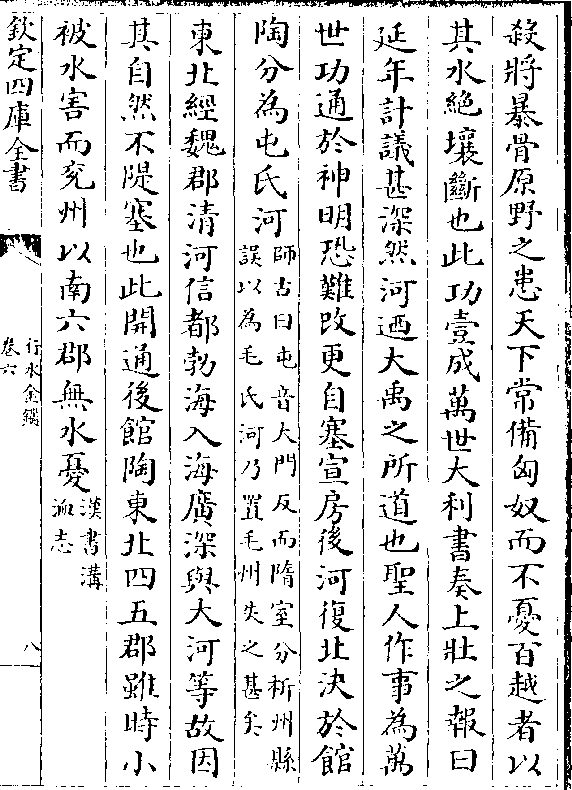 殺將暴骨原野之患天下常備匈奴而不憂百越者以
其水絶壤斷也此功壹成萬世大利書奏上壯之報曰
延年計議甚深然河迺大禹之所道也聖人作事為萬
世功通於神明恐難改更自塞宣房後河復北決於館
陶分為屯氏河
師古曰屯音大門反而隋室分析州縣
誤以為毛氏河乃置毛州失之甚矣
東北經魏郡清河信都勃海入海廣深與大河等故因
其自然不隄塞也此開通後館陶東北四五郡雖時小
被水害而兖州以南六郡無水憂
漢書溝
洫志
欽定四庫全書
行水金鑑
卷六
八